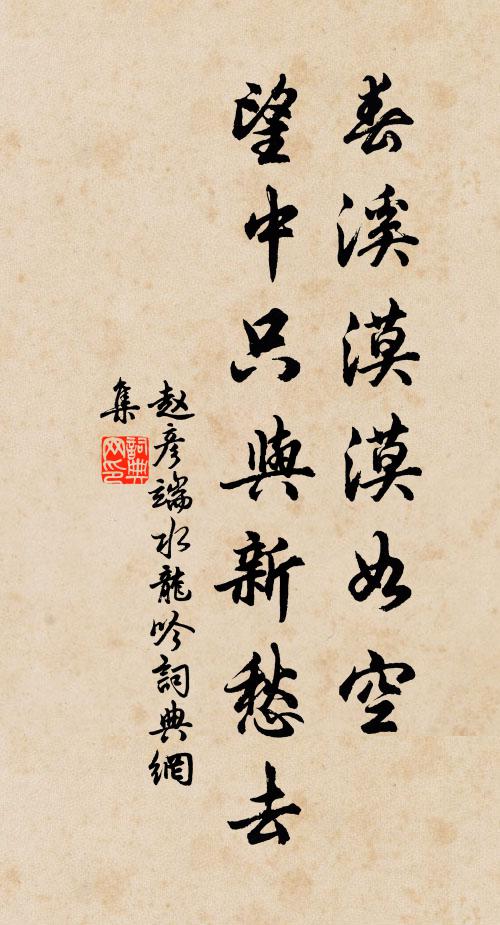 春溪漠漠如空
望中只與新愁去
赵彦端水龍吟詞典網
集
詞典
网印